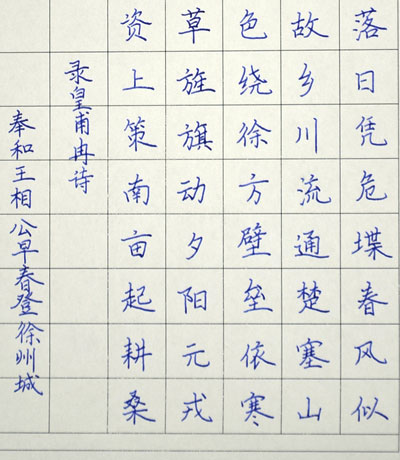 落日凭危堞春风似
故乡川流通楚塞山
色绕徐方壁垒依寒
草旌旗动夕阳元戎
资上策南亩起耕桑
录皇甫冉诗
奉和王相公早春登徐州城